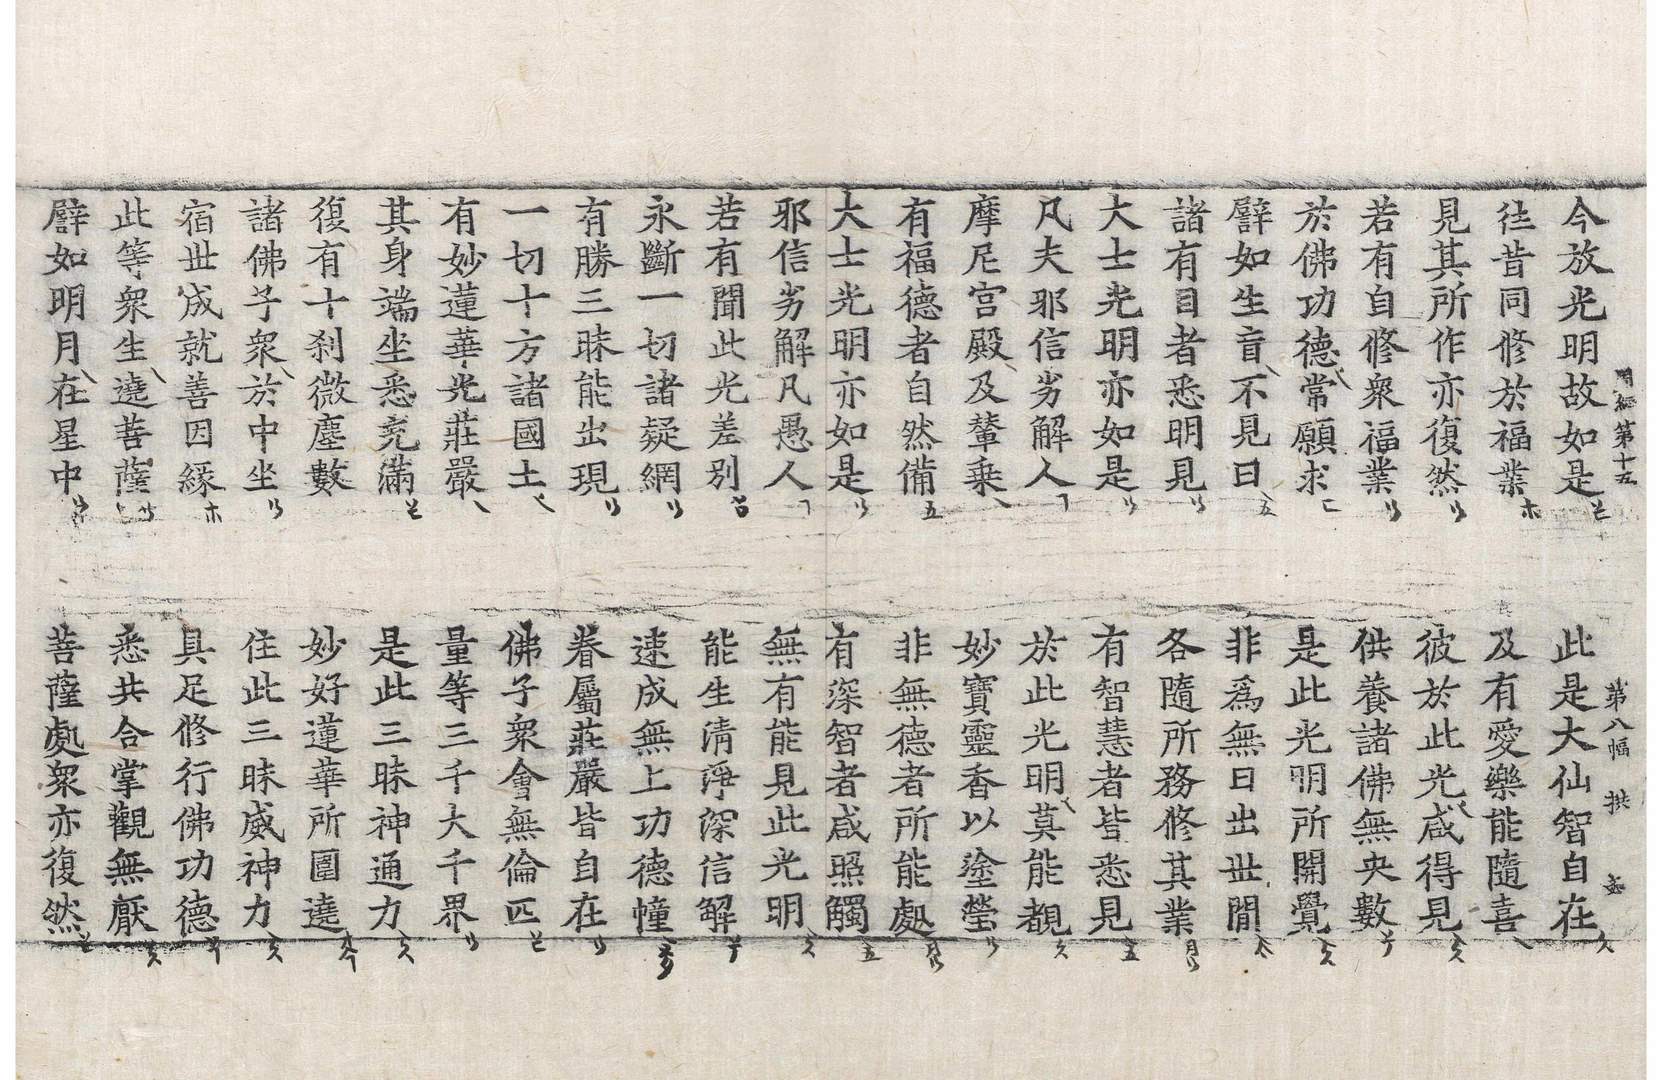 經第十五 第八幅
今放光明故如是 此是大仙智自在
往昔同修於福業 及有愛樂能隨喜
見其所作亦復然 彼於此光咸得見
若有自修衆福業 供養諸佛無央數
於佛功德常願求 是此光明所開覺
譬如生盲不見日 非爲無日出世間
諸有目者悉明見 各隨所務修其業
大士光明亦如是 有智慧者皆悉見
凡夫邪信劣解人 於此光明莫能覩
摩尼宮殿及輦乗 妙寶靈香以塗瑩
有福德者自然備 非無德者所能處
大士光明亦如是 有深智者咸照觸
邪信劣解凡愚人 無有能見此光明
若有聞此光差別 能生清淨深信解
永斷一切諸疑網 速成無上功德幢
有勝三昧能出現 眷屬莊嚴皆自在
一切十方諸國土 佛子衆會無倫匹
有妙蓮華光莊嚴 量等三千大千界
其身端坐悉充滿 是此三昧神通力
復有十刹微塵數 妙好蓮華所圍遶
諸佛子衆於中坐 住此三昧威神力
宿世成就善因緣 具足修行佛功德
此等衆生遶菩薩 悉共合掌觀無厭
譬如明月在星中 菩薩處衆亦復然